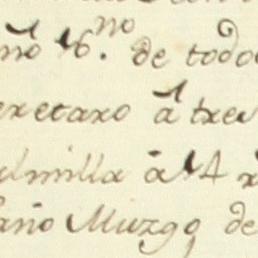 mõ 16.no de todo
eretaro á tre
lmilla à 14
año Muzgo de